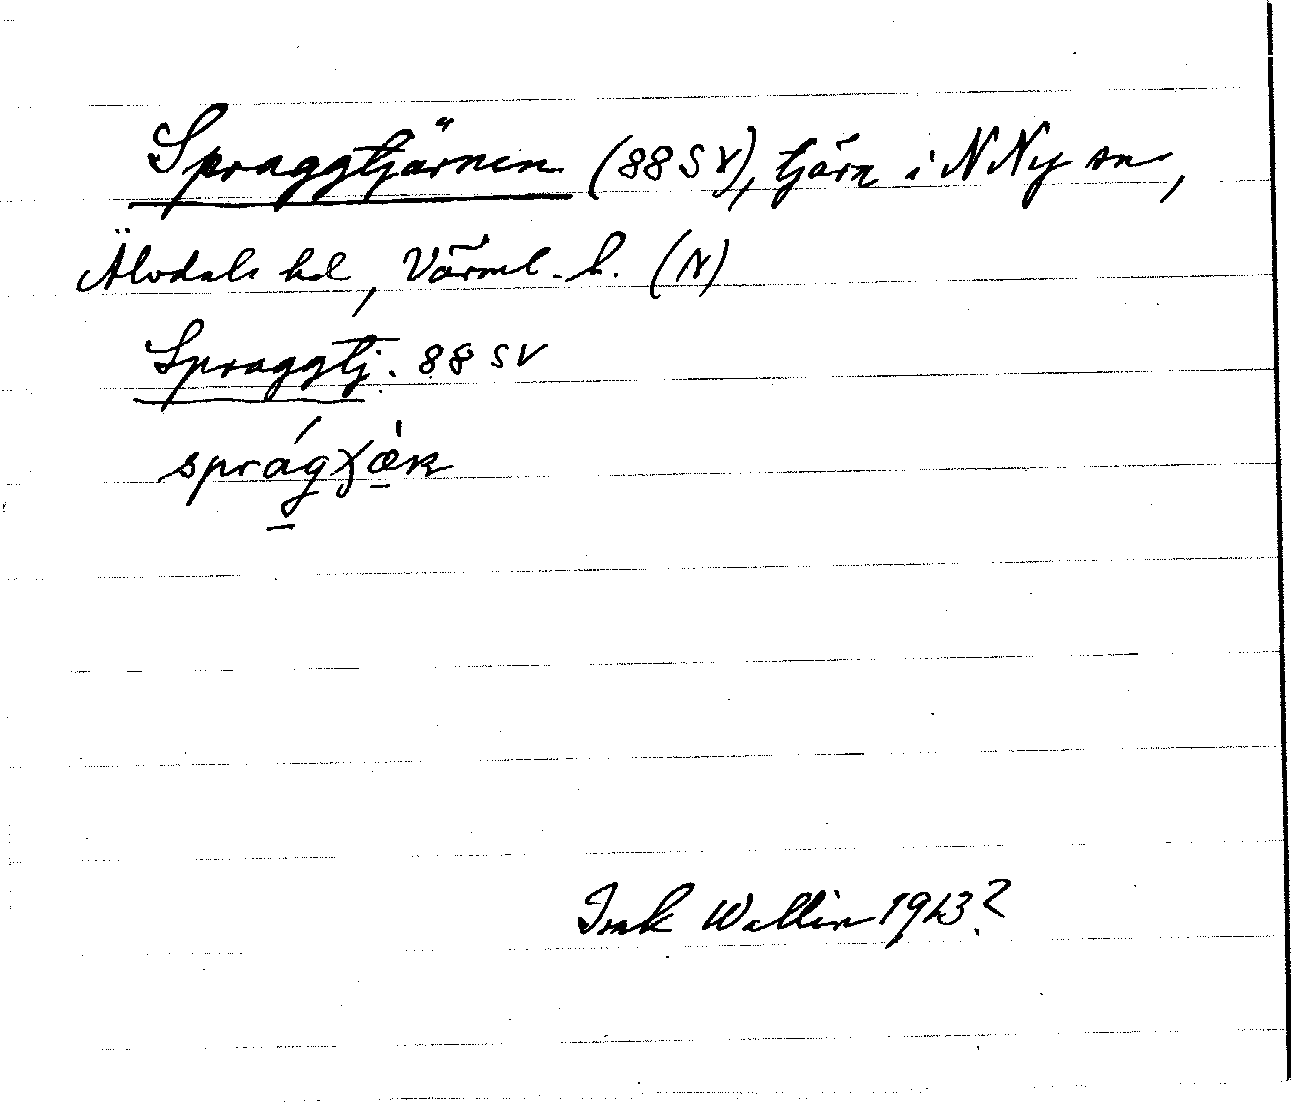 Spraggtjärnen (88 SV), tjärn i N Ny sn,
Älvdals hd, Värml. l. (N)
Spraggtj. 88 SV
Isak Wallin 1913?